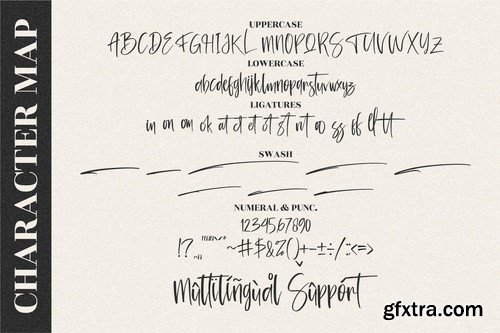 CHARACTER MAP
UPPERCASE
ABCDEFGHIJKLMNOPQRSTUVWXYZ
LOWERCASE
abcdefghijklmnopqrstuvwxyz
LIGATURES
in on om ok at ct et ot st rt oo ss ff lt tt
SWASH
NUMERAL & PUNC.
1234567890
!?,,"""~#$&%()+-±÷/:<=>
Multilíngùål Süppórt
gfxtra.com